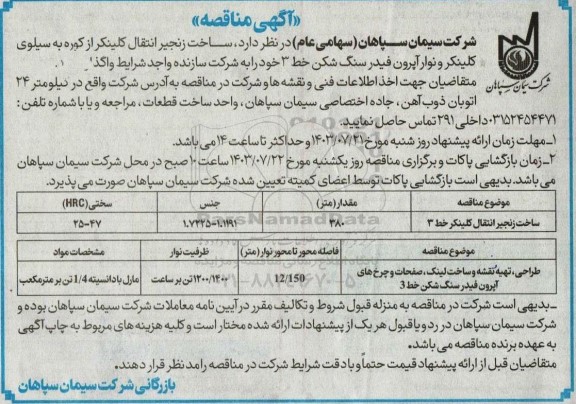 «آگهی مناقصه»
شرکت سیمان سپاهان (سهامی عام) در نظر دارد، ساخت زنجیر انتقال کلینکر از کوره به سیلوی
کلینکر و نوار آپرون فیدر سنگ شکن خط ۳ خود را به شرکت سازنده واجد شرایط واگذ
متقاضیان جهت اخذ اطلاعات فنی و نقشه ها و شرکت در مناقصه به آدرس شرکت واقع در کیلومتر ۲۴
اتوبان ذوب آهن، جاده اختصاصی سیمان سپاهان، واحد ساخت قطعات، مراجعه و یا با شماره تلفن:
۰۳۱۵۲۴۵۴۴۷۱ داخلی ۲۹۱ تماس حاصل نمایید.
۱ـ مهلت زمان ارائه پیشنهاد روز شنبه مورخ ۱۴۰۳/۰۷/۲۱ و حداکثر تا ساعت ۱۴ می باشد.
۲ـ زمان بازگشایی پاکات و برگزاری مناقصه روز یکشنبه مورخ ۱۴۰۳/۰۷/۲۲ ساعت ۱۰ صبح در محل شرکت سیمان سپاهان
می باشد. بدیهی است بازگشایی پاکات توسط اعضای کمیته تعیین شده شرکت سیمان سپاهان صورت می پذیرد.
شرکت سیمان سپاهان
موضوع مناقصه مقدار (متر) جنس سختی (HRC)
ساخت زنجیر انتقال کلینکر خط ۳ ۳۸۰ ۱.۷۲۲۵-۱.۱۱۹۱ ۲۵-۴۷
ParsNamadData
موضوع مناقصه فاصله محور تا محور نوار (متر) ظرفیت نوار مشخصات مواد
طراحی، تهیه نقشه و ساخت لینک، صفحات و چرخ های
آپرون فیدر سنگ شکن خط 3
12/150 ۱۲۰۰/۱۴۰۰ تن بر ساعت مارل با دانسیته 1/4 تن بر مترمکعب
ـ بدیهی است شرکت در مناقصه به منزله قبول شروط و تکالیف مقرر در آیین نامه معاملات شرکت سیمان سپاهان بوده و
شرکت سیمان سپاهان در رد و یا قبول هر یک از پیشنهادات ارائه شده مختار است و کلیه هزینه های مربوط به چاپ آگهی
به عهده برنده مناقصه می باشد.
متقاضیان قبل از ارائه پیشنهاد قیمت حتماً و با دقت شرایط شرکت در مناقصه را مد نظر قرار دهند.
بازرگانی شرکت سیمان سپاهان